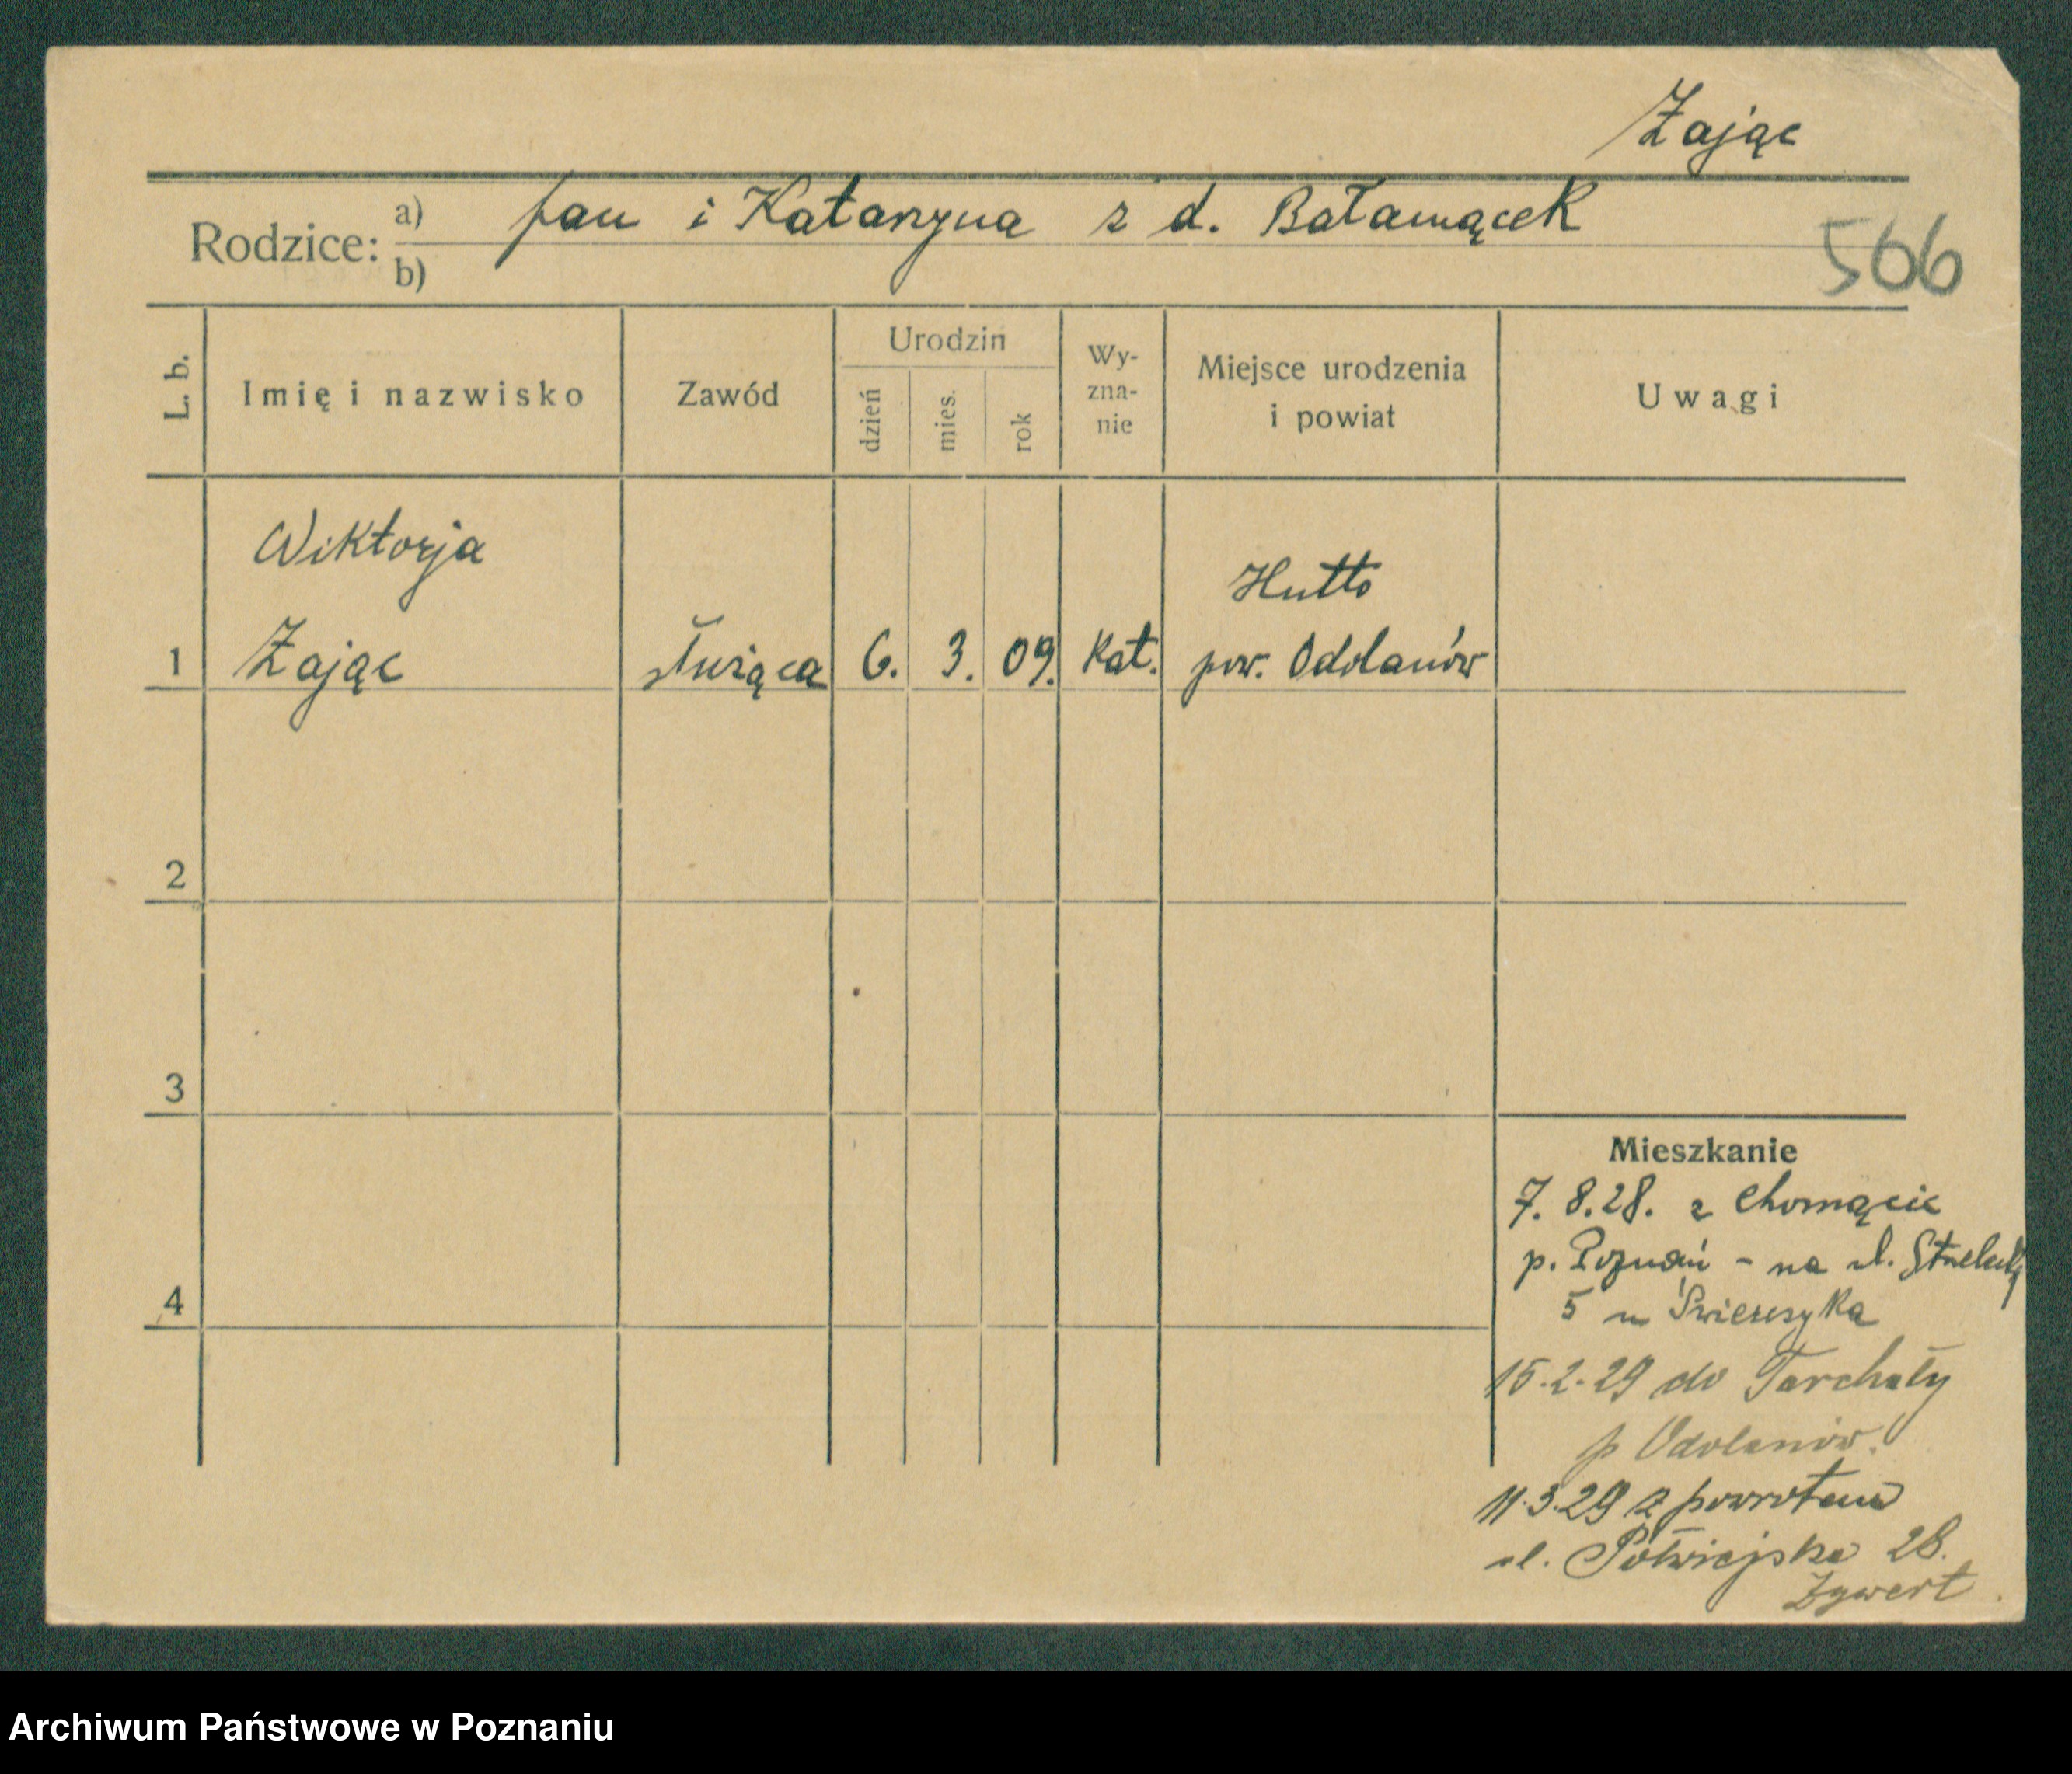 Zając
Rodzice: a) Jan i Katarzyna z d. Bałamącek
b)
566
L. b.
Imię i nazwisko
Zawód
Urodzin
dzień
mies.
rok
Wy-
zna-
nie
Miejsce urodzenia
i powiat
Uwagi
Wiktorja
Hutto
1 Zając służąca 6. 3. 09. Kat. pow. Odolanów
2
3
4
Mieszkanie
7. 8. 28. z Chomącic
p. Poznań - na ul. Strzelecką
5 u Świerczyka
15.2.29 do Tarchały
p Odolanów.
11.3.29 z powrotem
ul. Półwiejska 28.
Zywert
Archiwum Państwowe w Poznaniu